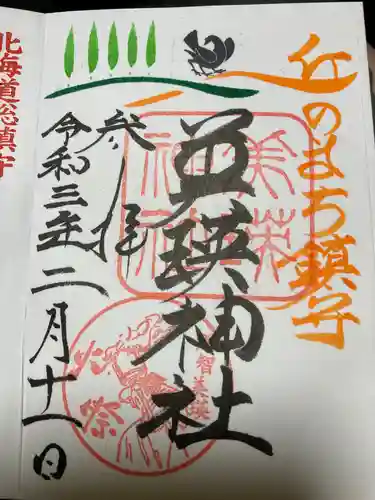 丘のまち鎮守
美瑛神社
参拝
令和三年二月十一日
美瑛
神社
智美瑛
火祭
北海道総鎮守